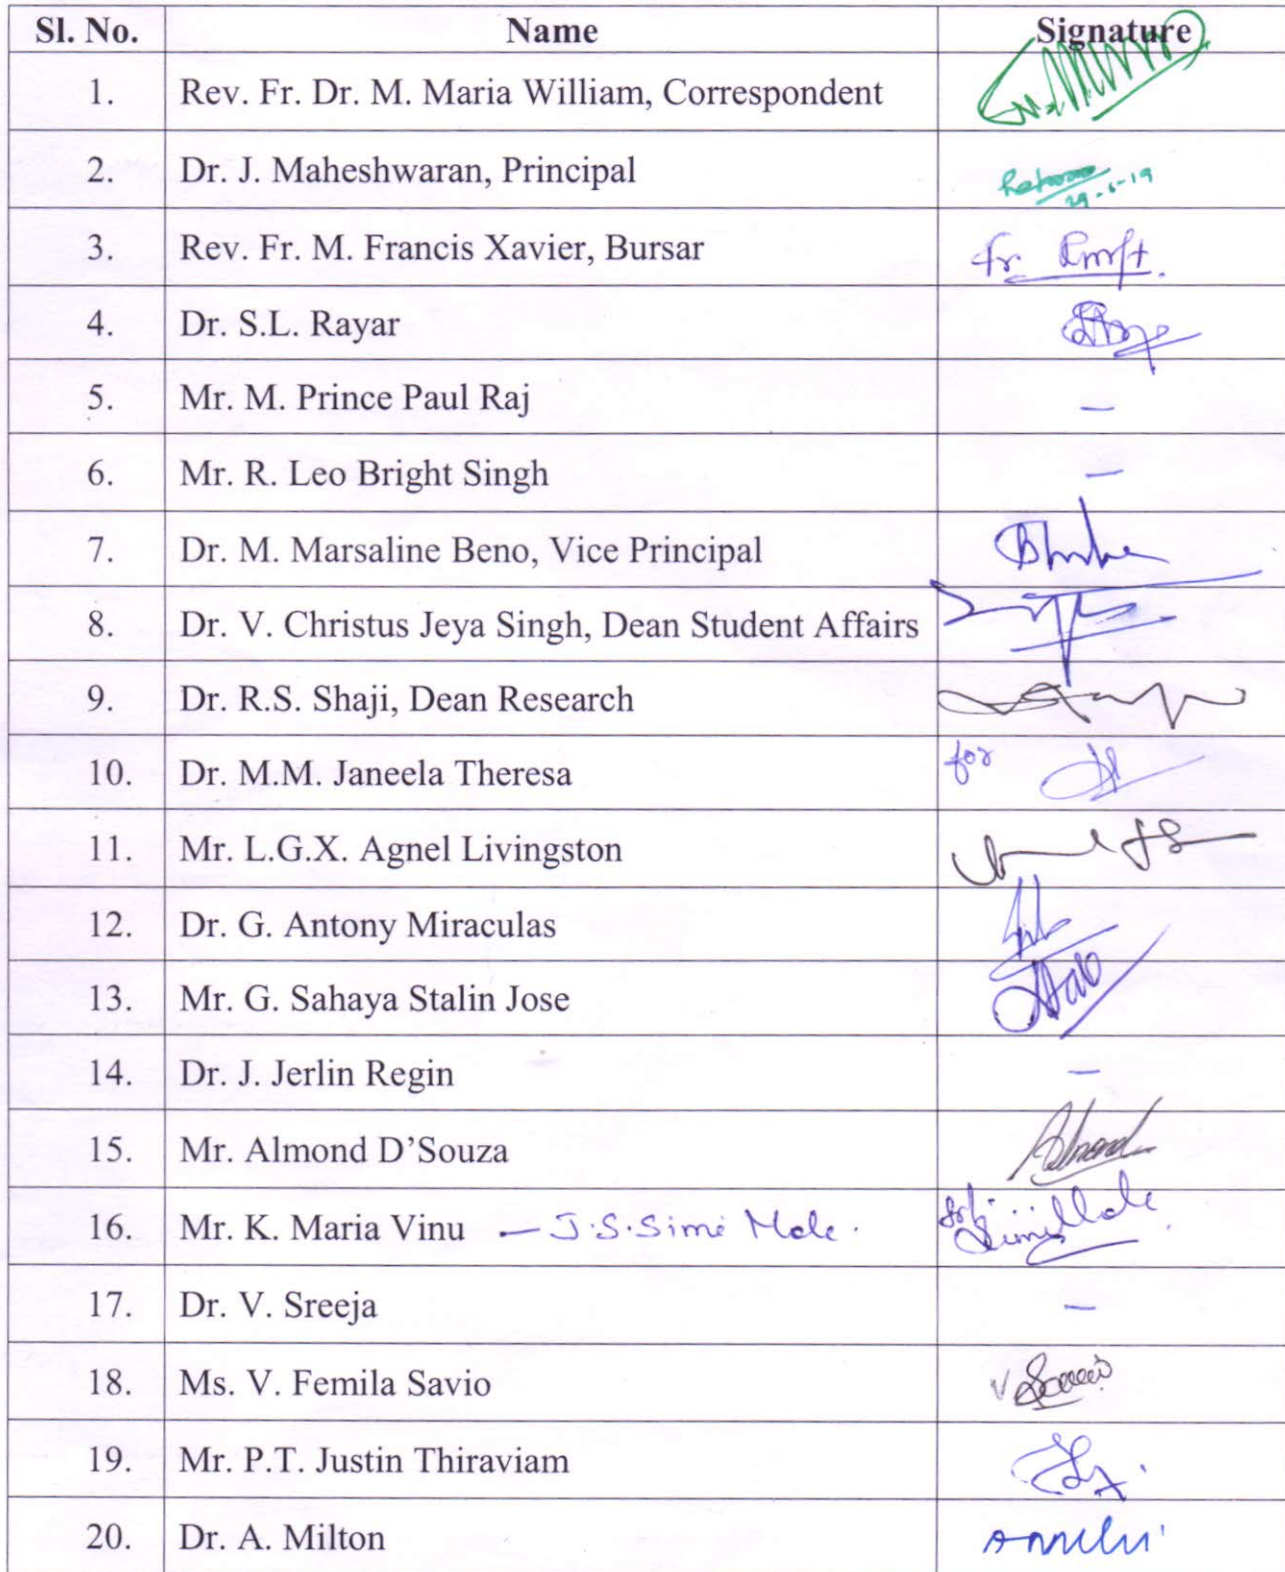 Sl. No. Name Signature
1. Rev. Fr. Dr. M. Maria William, Correspondent
2. Dr. J. Maheshwaran, Principal 29-6-19
3. Rev. Fr. M. Francis Xavier, Bursar Fr
4. Dr. S.L. Rayar
5. Mr. M. Prince Paul Raj –
6. Mr. R. Leo Bright Singh –
7. Dr. M. Marsaline Beno, Vice Principal
8. Dr. V. Christus Jeya Singh, Dean Student Affairs
9. Dr. R.S. Shaji, Dean Research
10. Dr. M.M. Janeela Theresa for
11. Mr. L.G.X. Agnel Livingston
12. Dr. G. Antony Miraculas
13. Mr. G. Sahaya Stalin Jose
14. Dr. J. Jerlin Regin –
15. Mr. Almond D'Souza Almond
16. Mr. K. Maria Vinu – J.S.Simi Mole. for SimiMole
17. Dr. V. Sreeja –
18. Ms. V. Femila Savio
19. Mr. P.T. Justin Thiraviam
20. Dr. A. Milton